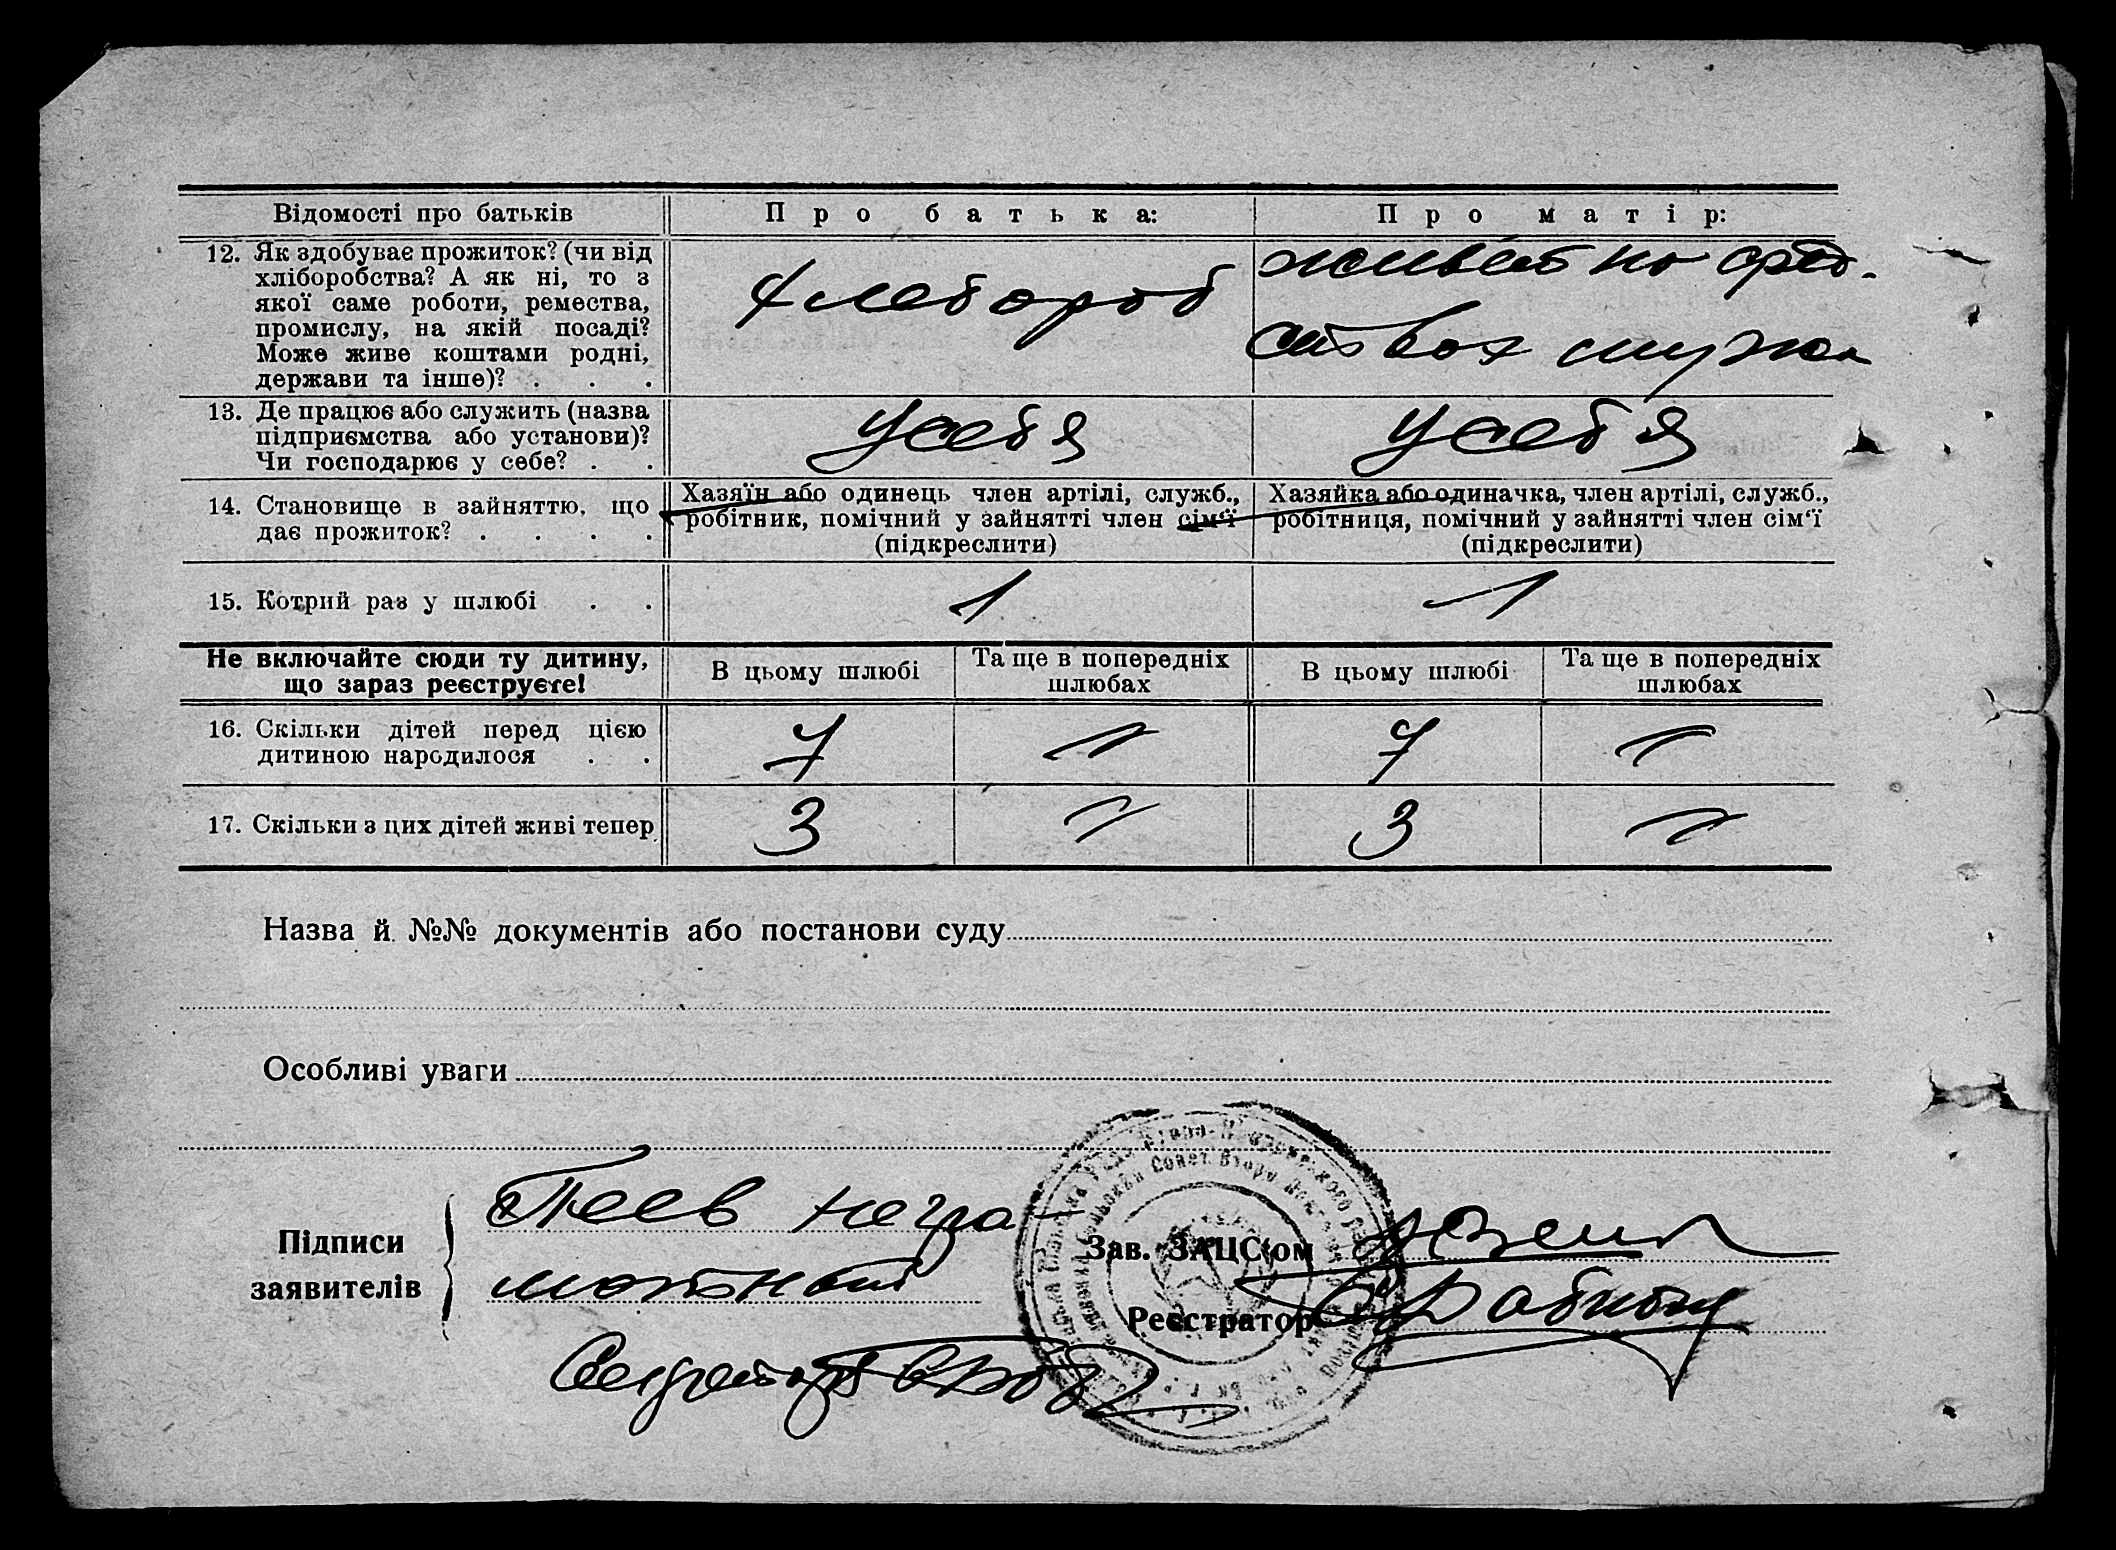 Відомості про батьків
Про батька:
Про матір:
12. Як здобуває прожиток? (чи від
хліборобства? А як ні, то з
якої саме роботи, ремества,
промислу, на якій посаді?
Може живе коштами родні,
держави та інше)? . . .
хлебороб
живет на сред-
ствах мужа
13. Де працює або служить (назва
підприємства або установи)?
Чи господарює у себе? . .
у себя
у себя
14. Становище в зайняттю, що
дає прожиток? . . . .
Хазяїн або одинець член артілі, служб.,
робітник, помічний у зайнятті член сім'ї
(підкреслити)
Хазяйка або одиначка, член артілі, служб.,
робітниця, помічний у зайнятті член сім'ї
(підкреслити)
15. Котрий раз у шлюбі . .
1
1
Не включайте сюди ту дитину,
що зараз реєструєте!
В цьому шлюбі
Та ще в попередніх
шлюбах
В цьому шлюбі
Та ще в попередніх
шлюбах
16. Скільки дітей перед цією
дитиною народилося . .
7
7
17. Скільки з цих дітей живі тепер
3
3
Назва й №№ документів або постанови суду
Особливі уваги
Підписи
заявителів
негра-
мотный
Секретарь
Зав. ЗАЦС'ом
Реєстратор